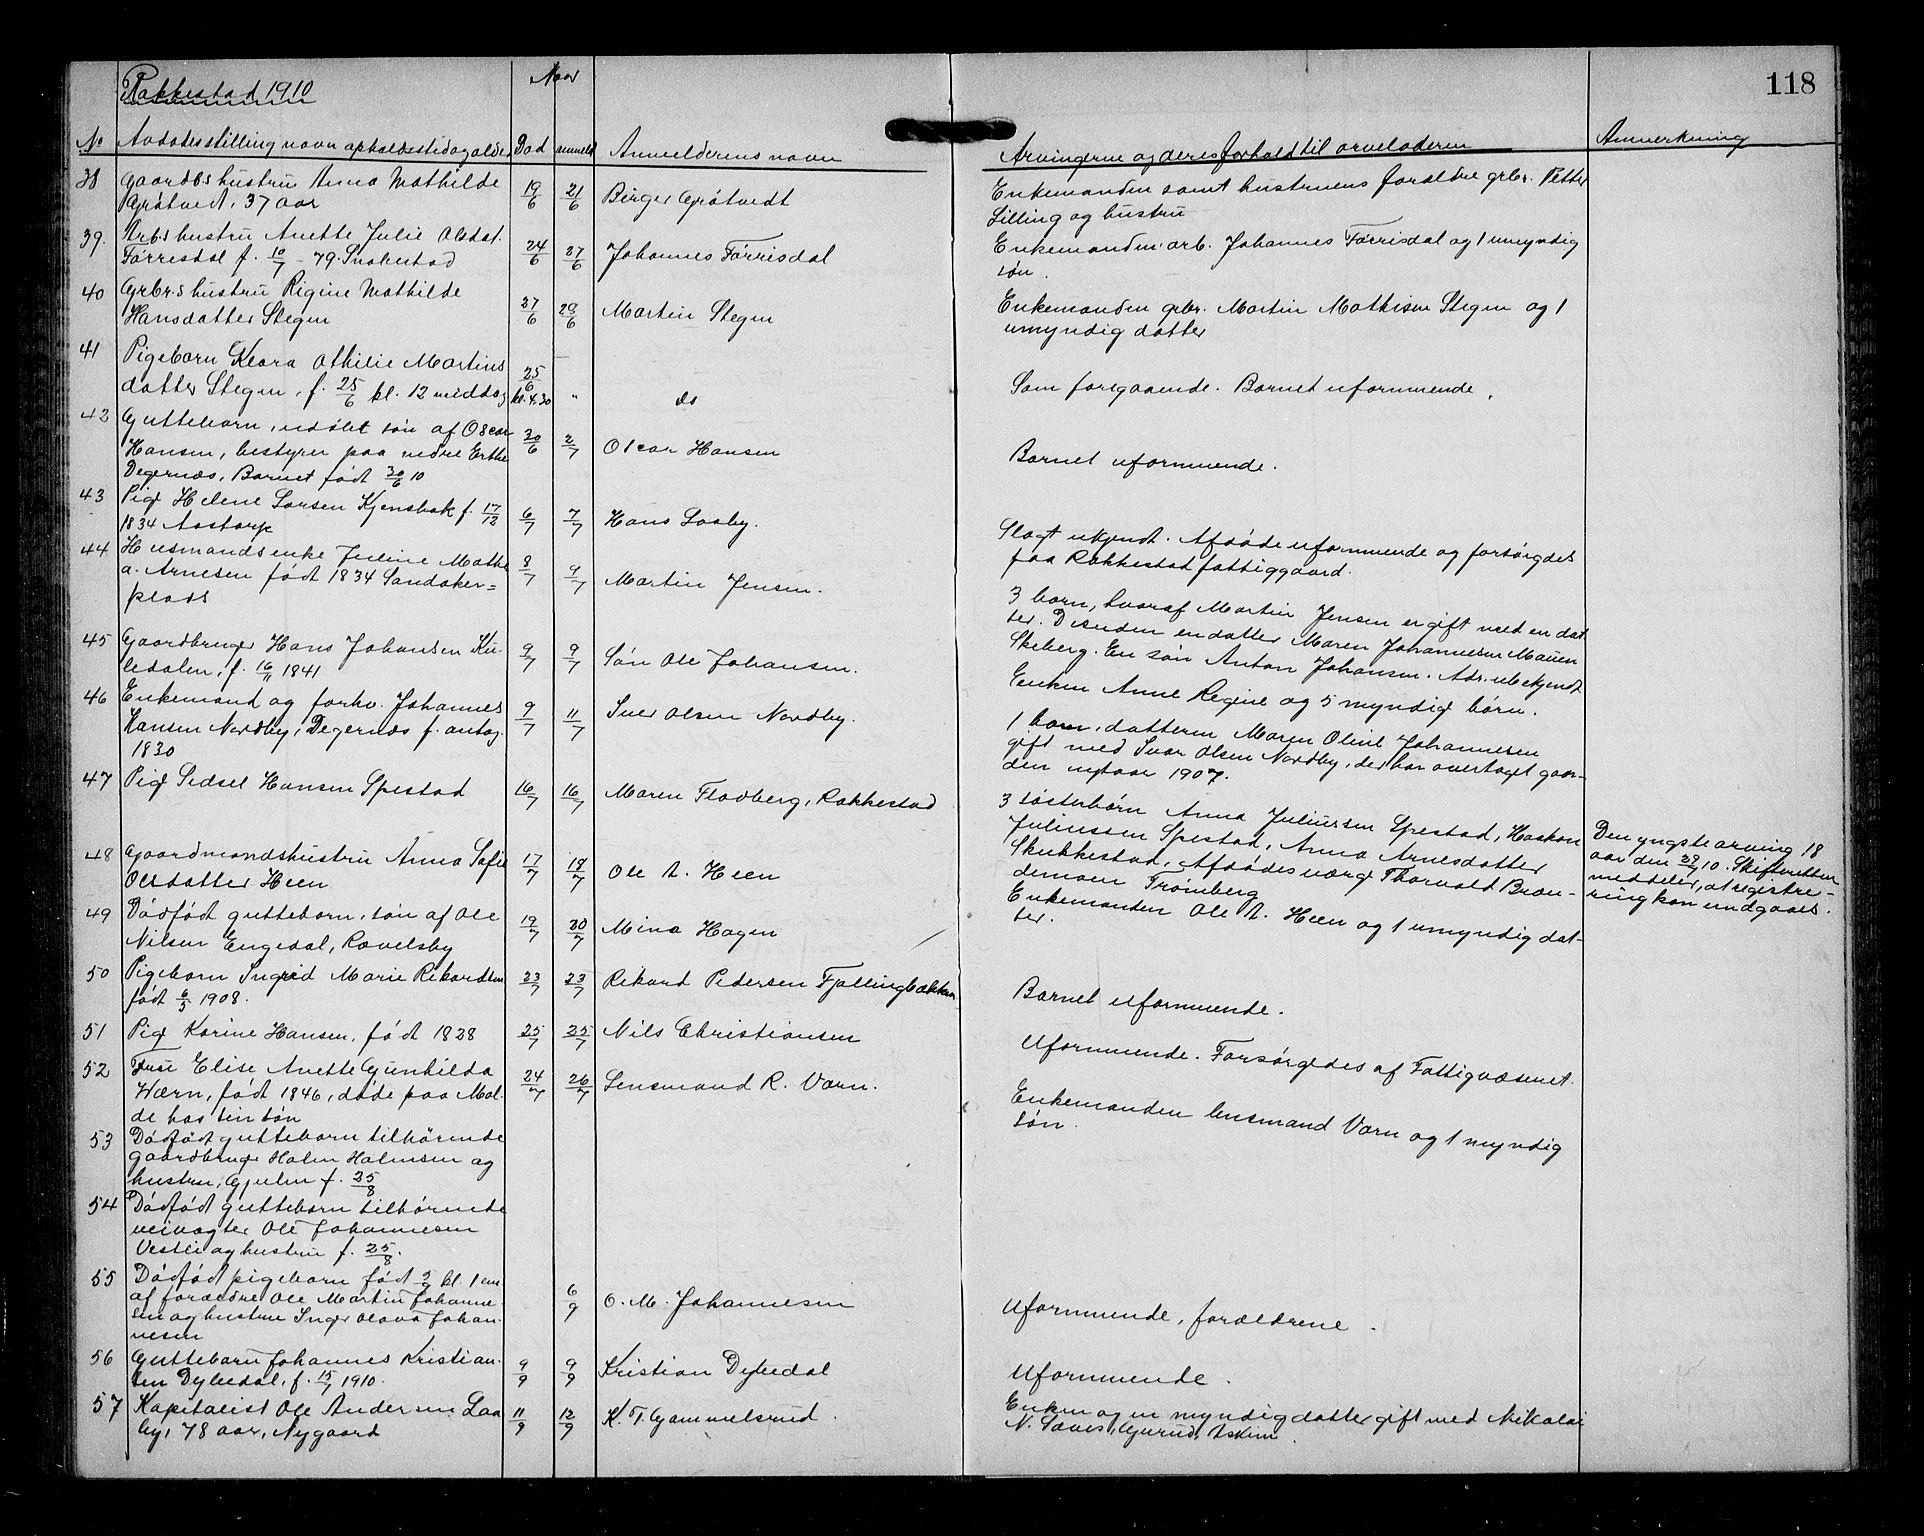 Rakkestad 1910
Naar
118
No Avdødes stilling navn opholdssted og alder Død anmeldt Anmelderens navn Arvingerne og deres forhold til arveladeren Anmerkning
38 Gaardbs hustru Anna Mathilde 19/6 21/6 Birger Gråtvedt Enkemanden samt hustruens foræltre grbr. Petter
Gråtvedt, 37 aar
Lilling og hustru
39. Arbs hustru Anette Julie Olsdat. 24/6 27/6 Johannes Førrisdal Enkemanden arb. Johannes Førrisdal og 1 umyndig
Førrisdal f. 10/7 - 79.
søn.
40 Grbr.s hustru Rigine Mathilde 27/6 29/6 Martin Stegen Enkemanden grbr. Martin Mathisen Stegen og 1
Hansdatter Stegen
umyndig datter
41 Pigebarn Klara Othilie Martins 25/6
datter Stegen, f. 25/6 kl. 12 middag kl. 4.30 " do Som foregaaende. Barnet uformuende.
42 Guttebarn, udøbt søn af Oscar 30/6 2/7 Oscar Hansen Barnet uformuende.
Hansen, bestyrer paa nedre Erthe
Degernæs, Barnet født 30/6 10
43 Pige Helene Larsen Kjensbak f. 17/12 6/7 7/7 Hans Laaby. Slægt ukjendt. Afdøde uformuende og forsørgdes
1834 Aastorp
paa Rakkestad fattiggaard.
44 Husmandsenke Juline Mathe 8/7 9/7 Martin Jensen. 3 børn, hvoraf Martin Jensen er gift med en dat
a. Arnesen født 1834 Sandaker=
ter. Desuden en datter Maren Johannesen Mauen
plads
Skeberg. En søn Anton Johansen. Adr. ubekjendt
45 Gaardbruger Hans Johansen Ku- 9/7 9/7 Søn Ole Johansen. Enken Anne Regine og 5 myndige børn.
ledalen, f. 16/11 1841
46 Enkemand og forhv. Johannes 9/7 11/7 Iver Olsen Nordby. 1 barn, datteren Maren Oline Johannesen
Hansen Nordby, Degernæs f. antag.
gift med Ivar Olsen Nordby, der har overtaget gaar-
1830
den nytaar 1907.
47 Pige Sidsel Hansen Spestad 16/7 16/7 Maren Fladberg, Rakkestad 3 søsterbørn Anna Juliussen Spestad, Haakon
Juliussen Spestad, Anna Arnesdatter
Skukkestad, Afdødes værge Thorvald Bræn-
demoen Trømberg
Den yngste arving 18
aar den 29/7 10. Skifteretten
meddeler, at registre-
ring kan undgaaes.
48 Gaardmandshustru Anna Sofie 17/7 18/7 Ole A. Heen Enkemanden Ole A. Heen og 1 umyndig dat-
Olsdatter Heen
ter.
49 Dødfødt guttebarn, søn af Ole 19/7 20/7 Mina Hagen
Nilsen Engedal, Ravelsby
50 Pigebarn Ingrid Marie Rikardsen 23/7 23/7 Rikard Pedersen Fjøllingbækken Barnet uformuende.
født 6/5 1908.
51 Pige Karine Hansen, født 1828 25/7 25/7 Nils Christiansen Uformuende. Forsørgedes af Fattigvæsenet.
52 Fru Elise Anette Gunhilda 24/7 26/7 Lensmand R. Værn. Enkemanden lensmand Værn og 1 myndig
Wærn, født 1846, døde paa Mol-
søn.
de hos sin søn
53 Dødfødt guttebarn tilhørende
gaardbruger Halm Halmsen og
hustru, Gjulem f. 25/8
54 Dødfødt guttebarn tilhørende
veivogter Ole Johannesen
Vestli og hustru f. 25/8.
55 Dødfødt pigebarn født 2/9 kl. 1 em. 6/9 O. M. Johannesen Uformuende, forældrene.
af forældre Ole Martin Johanne-
sen og hustru Inger Olava Johan-
nesen
56 Guttebarn Johannes Kristian- 9/9 9/9 Kristian Dybedal Uformuende.
sen Dybedal, f. 15/7 1910.
57 Kapitalist Ole Andersen Laa 11/9 12/9 K. T. Gammelsrud. Enken og en myndig datter gift med Nikolai
by, 78 aar, Nygaard
N. Sæves, Gurud, Askim.